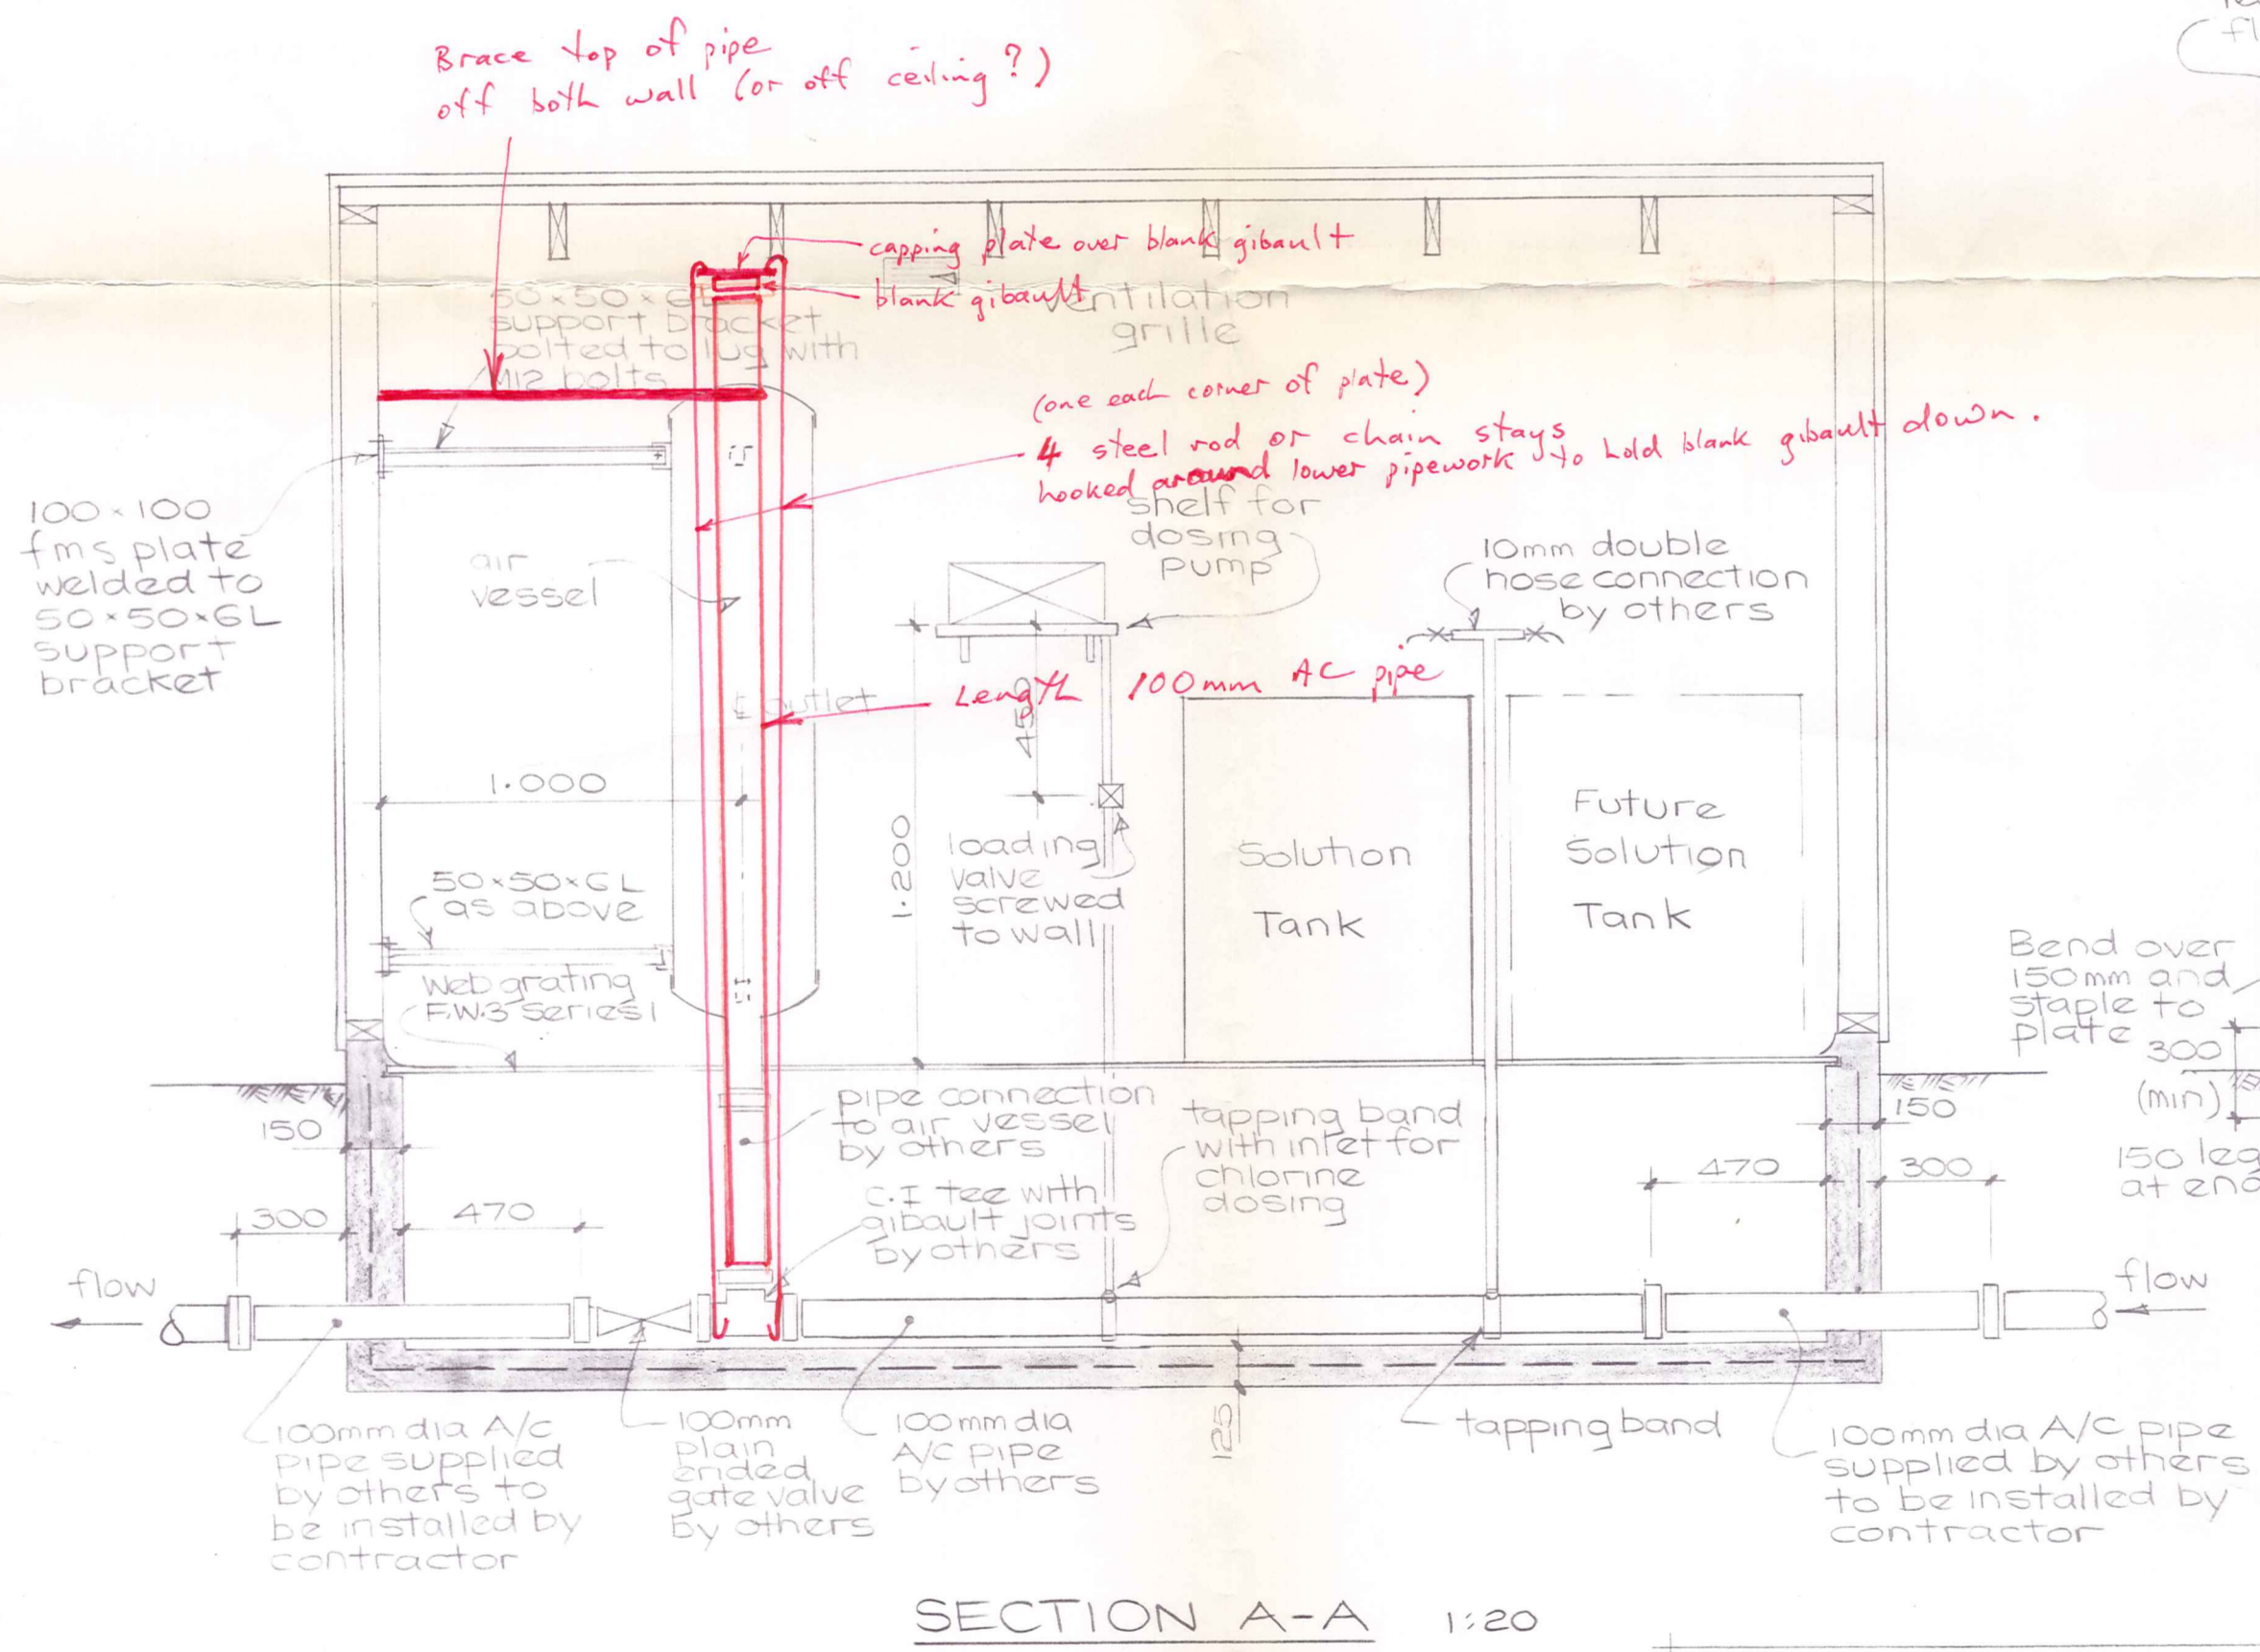 Brace top of pipe
off both wall (or off ceiling?)
capping plate over blank gibault
blank gibault
50×50×6L
support bracket
bolted to lug with
M12 bolts
ventilation
grille
(one each corner of plate)
4 steel rod or chain stays
hooked around lower pipework to hold blank gibault down.
100×100
fms plate
welded to
50×50×6L
support
bracket
air
vessel
shelf for
dosing
pump
10mm double
hose connection
by others
Length 100mm AC pipe
℄ outlet
450
1.000
1.200
loading
valve
screwed
to wall
Solution
Tank
Future
Solution
Tank
50×50×6L
as above
Web grating
F.W.3 Series 1
Bend over
150mm and
staple to
plate
300
(min)
150 leg
at end
pipe connection
to air vessel
by others
tapping band
with inlet for
chlorine
dosing
C.I tee with
gibault joints
by others
150
300
470
470
150
300
flow
flow
125
100mm dia A/C
pipe supplied
by others to
be installed by
contractor
100mm
plain
ended
gate valve
by others
100mm dia
A/C pipe
by others
tapping band
100mm dia A/C pipe
supplied by others
to be installed by
contractor
SECTION A-A 1:20